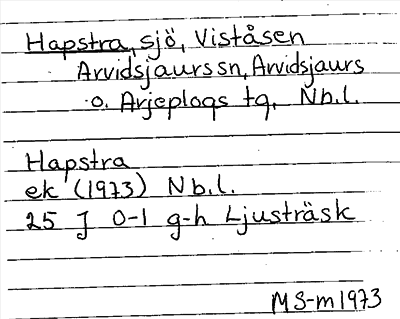 Hapstra, sjö, Viståsen
Arvidsjaurs sn, Arvidsjaurs
o. Arjeplogs tg, Nb.l.
Hapstra
ek (1973) Nb.l.
25 J 0-1 g-h Ljusträsk
MS-m 1973